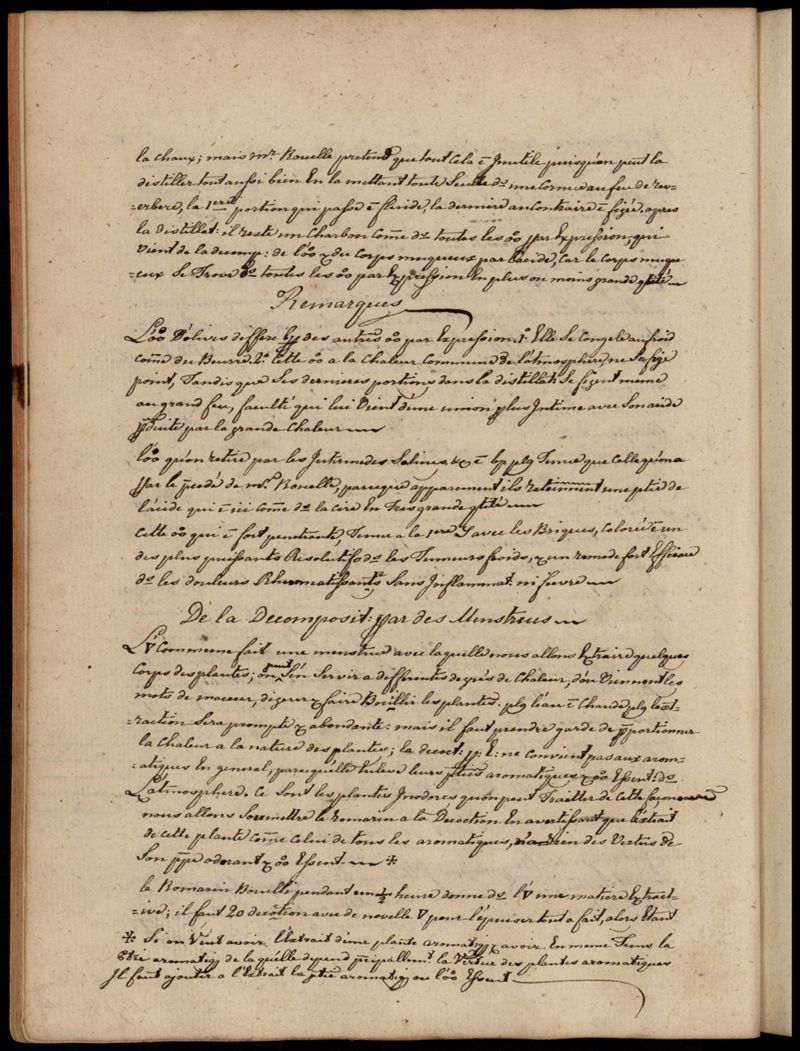 la chaux; mais mr. Rouelle pretend que tout Cela ē Jnutile puisqu'on peut la
distiller tout aussi bien En la mettant toute Seule ds une Cornue au feu de rev=
=erbere, la 1ere portion qui passe ē fluide, la derniere au Contraire ē figée. apres
la distillat: il reste un Charbon Comē ds toutes les oo par Expression, qui
Vient de la decomp: de l'oo & du Corps muqueux par l'acide, Car le Corps muqu=
=eux Se Trove ds toutes les oo par Expression En plus ou moins grande qtité
Remarques
L'oo D'olives differe des autres oo par Expression. 1° Elle Se Congele au froid
Comē du Beurre. 2° Cette oo a la Chaleur Commune de l'atmosphere, ne Se fige
point, Tandis que Ses dernieres portions dans la distillat: Se figent meme
au grand feu, faculté qui lui Vient d'une union plus Jntime avec Son acide
pduite par la grande Chaleur
l'oo qu'on retire par les Jntermedes Salines, &c ē bp plg Tenue que Celle qu'on a
par le pcedé de mr. Rouelle, parceque apparemment ils retiennent une ptie de
l'acide qui ē ici Comē ds la Cire En Tres grande qtité
Cette oo qui ē fort penetrante, Tenue a la 1ere avec les Briques, Colorée ē un
des plus puissants Resolutifs ds les Tumeurs froids, & un remede fort Efficace
ds les douleurs Rhumatissants, Sans Jnflammat: ni fievre
De la Decomposit: par des Menstrues
L'▽ Commune fait une menstrue avec laquelle nous allons Extraire quelques
Corps des plantes; on peut S'en Servir a differents degrés de Chaleur, d'ou Viennent les
mots de macerer, digerer & faire Bouillir les plantes. plg l'eau ē Chaude plg l'ext=
=raction Sera prompte & abondante: mais il faut prendre garde de pportionner
la Chaleur a la nature des plantes; la decoct: p: E: ne Convient pas aux arom=
=atiques En general, parcequ'elle Enleve leurs pties aromatiques & oo Essent: ds
L'atmosphere. Ce Sont les plantes Jnodores qu'on peut Traitter de Cette façon
nous allons Soumettre le romarin a la Decoction En avertissant que l'extrait
de cette plante Comē Celui de tous les aromatiques, n'a rien des Vertus de
Son ppe odorant & oo Essent. *
le Romarin Bouilli pendant une ½ heure donne ds l'▽ une matiere Extract=
=ive; il faut 20 decotion avec de novelle ▽ pour l'épuiser tout a fait, alors Etant
* Si on Veut avoir l'Extrait d'une plante aromatiq & avoir En meme Tems la
ptie aromatiq de laquelle depend pcipallemt la Vertue des plantes aromatiques
Jl faut ajouter a l'Extrait la ptie aromatiq ou l'oo Essent